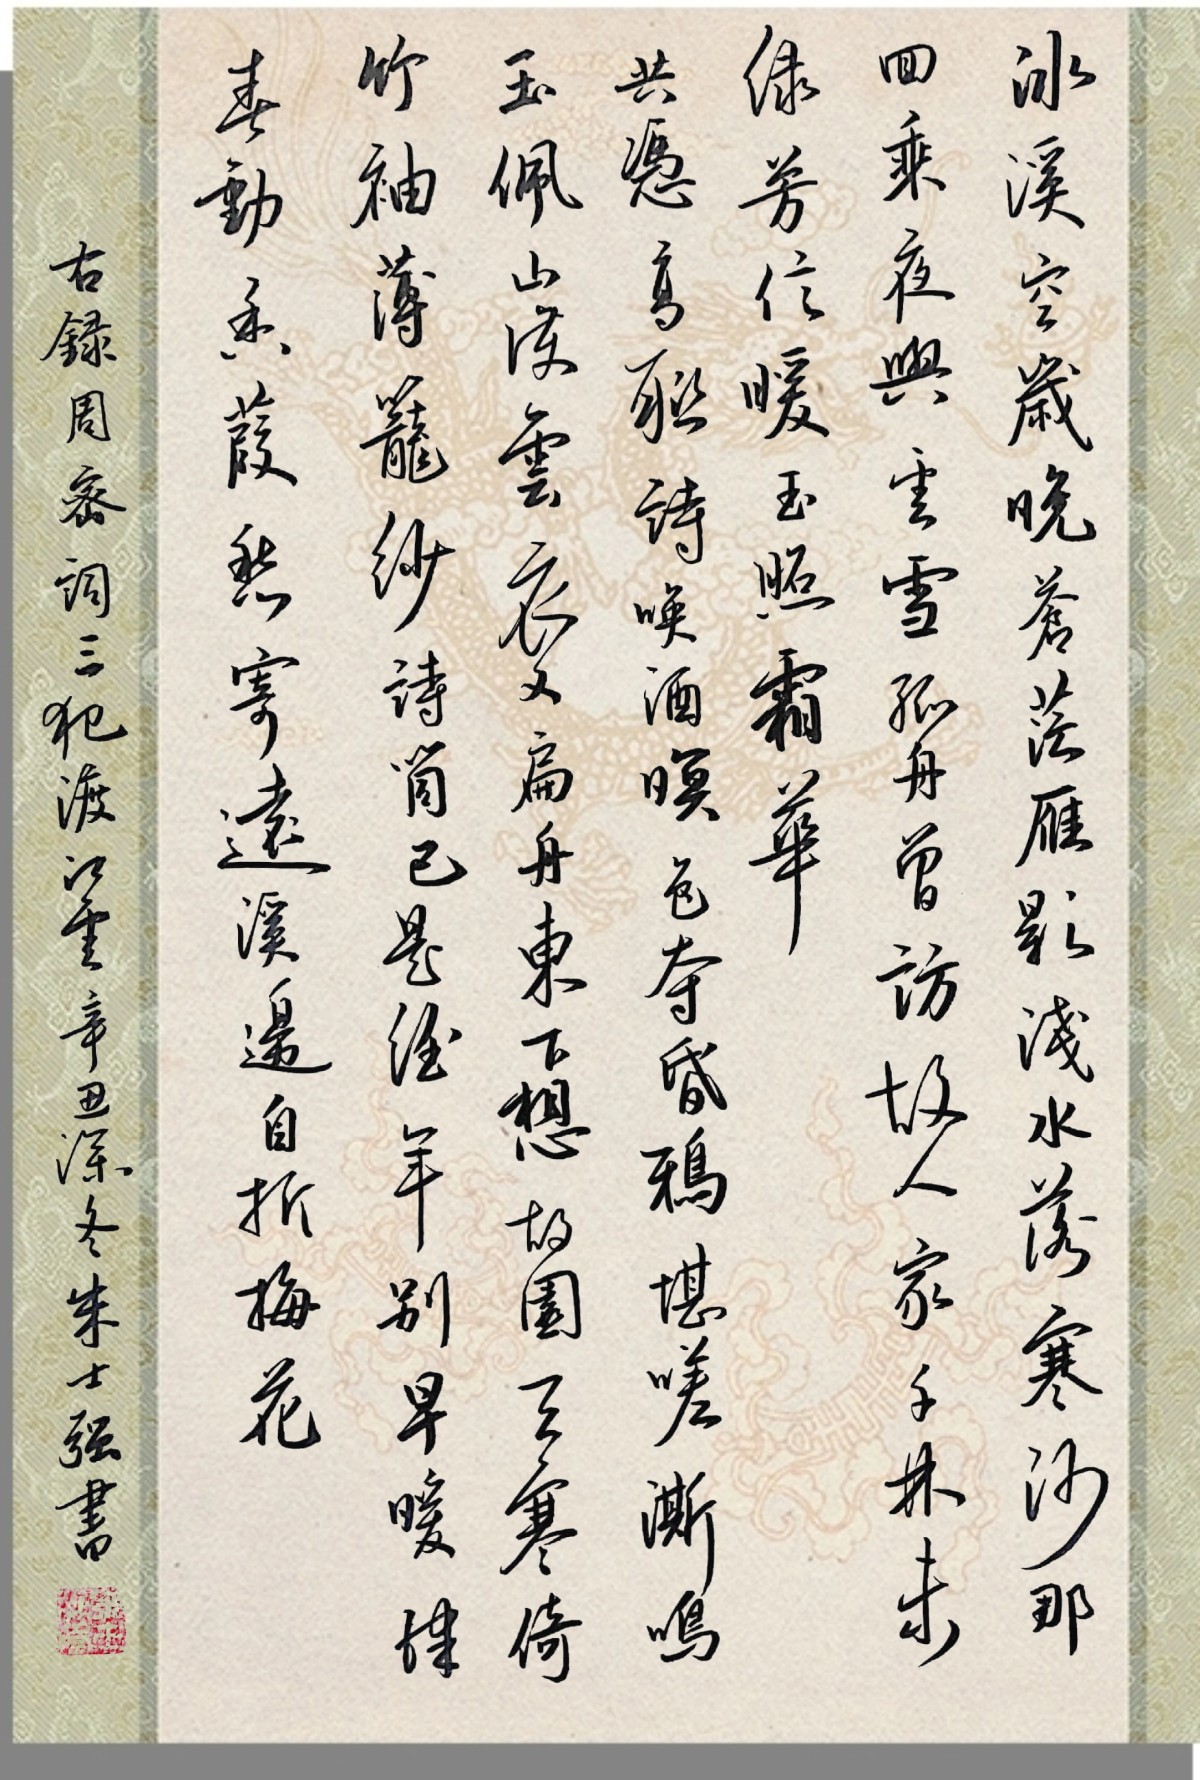 冰溪空歲晚蒼茫雁影淺水落寒沙那
回乘夜興雲雪孤舟曾訪故人家千林未
绿芳信暖玉照霜華
共憑高聯詩唤酒暝色夺昏鴉堪嗟澌鳴
玉佩山護雲衣又扁舟東下想故園天寒倚
竹袖薄籠纱詩筒已是經年别早暖律
春動香葭愁寄遠溪邊自折梅花
右録周密詞三犯渡江雲辛丑深冬朱士强書